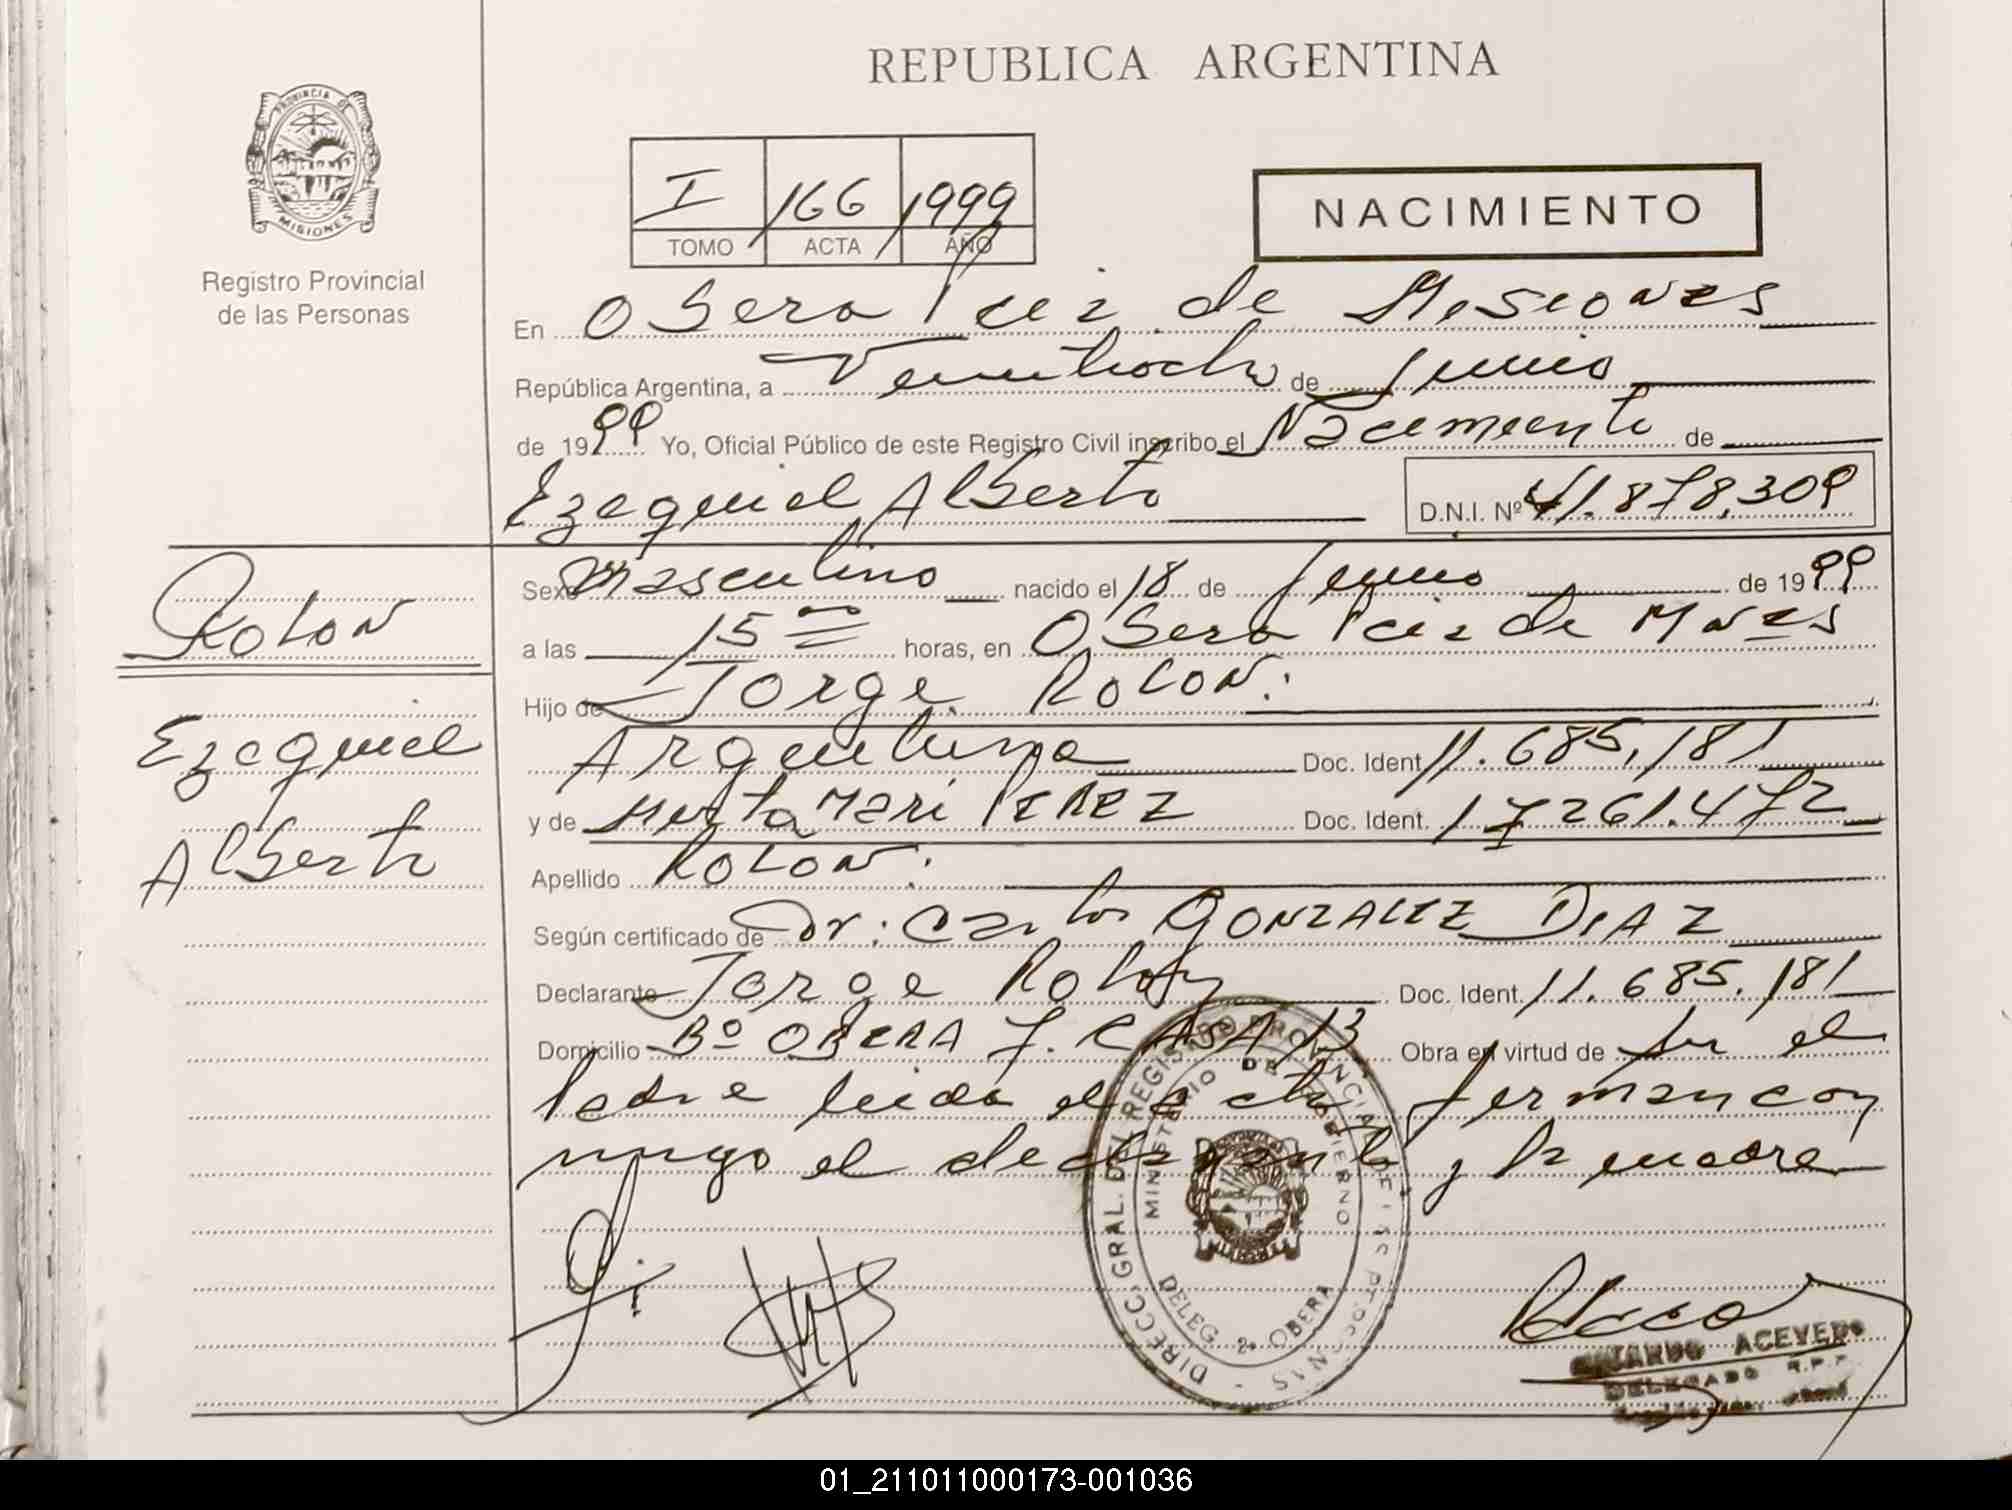 REPUBLICA ARGENTINA
PROVINCIA DE
MISIONES
Registro Provincial
de las Personas
I 166 1999
TOMO ACTA AÑO
NACIMIENTO
En Obera Pcia. de Misiones
República Argentina, a Veintiocho de Junio
de 1999 Yo, Oficial Público de este Registro Civil inscribo el Nacimiento de
Ezequiel Alberto D.N.I. Nº 41.878,309
Rolon
Ezequiel
Alberto
Sexo Masculino nacido el 18 de Junio de 1999
a las 15 horas, en Obera Pcia de Mnes
Hijo de Jorge Rolon.
Argentina Doc. Ident 11.685,181
y de Mirta Mari PEREZ Doc. Ident. 17 261.472
Apellido Rolon.
Según certificado de Dr: Carlos GONZALEZ DIAZ
Declarante Jorge Rolon Doc. Ident. 11.685.181
Domicilio Bº OBERA 7. CASA 13 Obra en virtud de Ser el
Padre leida el acta firman con
migo el declarante y la madre
DIRECC. GRAL. DEL REGISTRO PROVINCIAL DE LAS PERSONAS
MINISTERIO DE GOBIERNO
DELEG. 2ª OBERA
ACEVEDO
DELEGADO R.P.P.
01_211011000173-001036